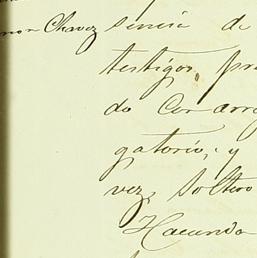 non Chavez
sencia de
testigos, pro
do con arre
gatorio, y
vez, soltero
Hacienda